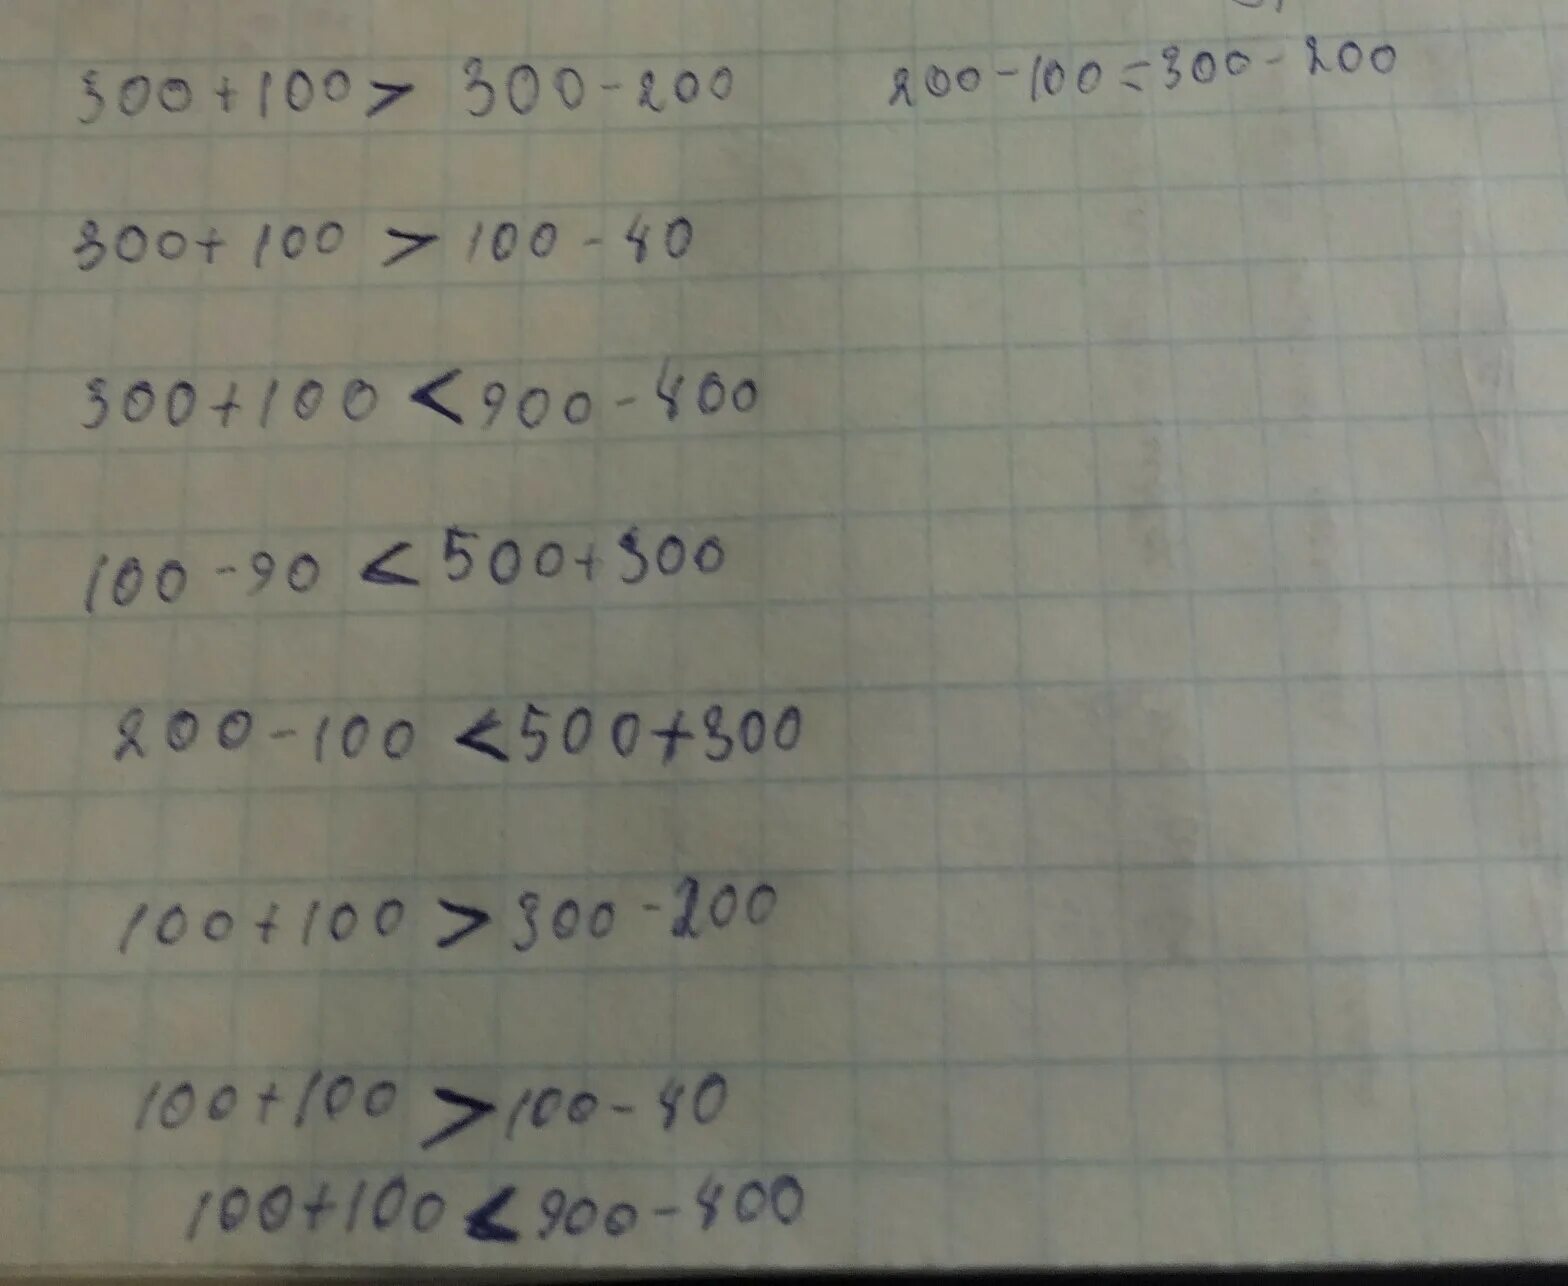 300+100> 300-200 200-100=300-200
300+100 > 100-40
300+100 < 900-400
100-90 < 500+300
200-100 < 500+300
100+100 > 300-200
100+100 > 100-40
100+100 < 900-400